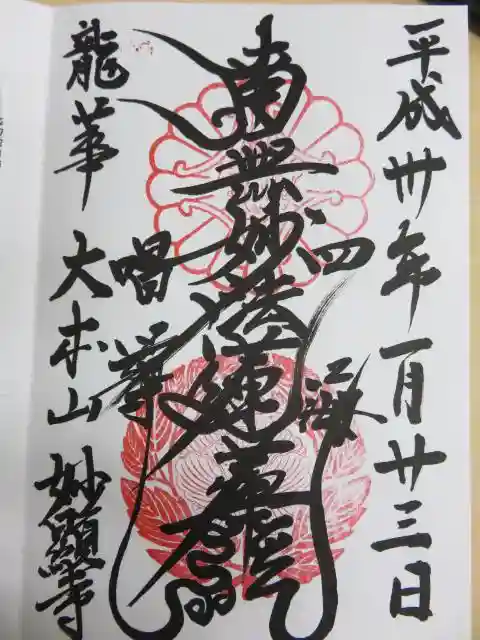 平成卅年一月廿三日
四海
南無妙法蓮華経
唱導
龍華 大本山 妙顕寺